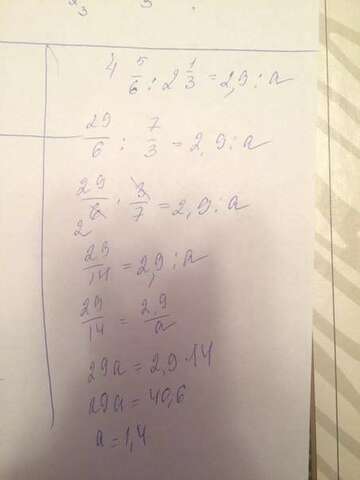 4 5/6 : 2 1/3 = 2,9 : a
29/6 : 7/3 = 2,9 : a
29/6 · 3/7 = 2,9 : a
2
29/14 = 2,9 : a
29/14 = 2,9/a
29a = 2,9 · 14
29a = 40,6
a = 1,4